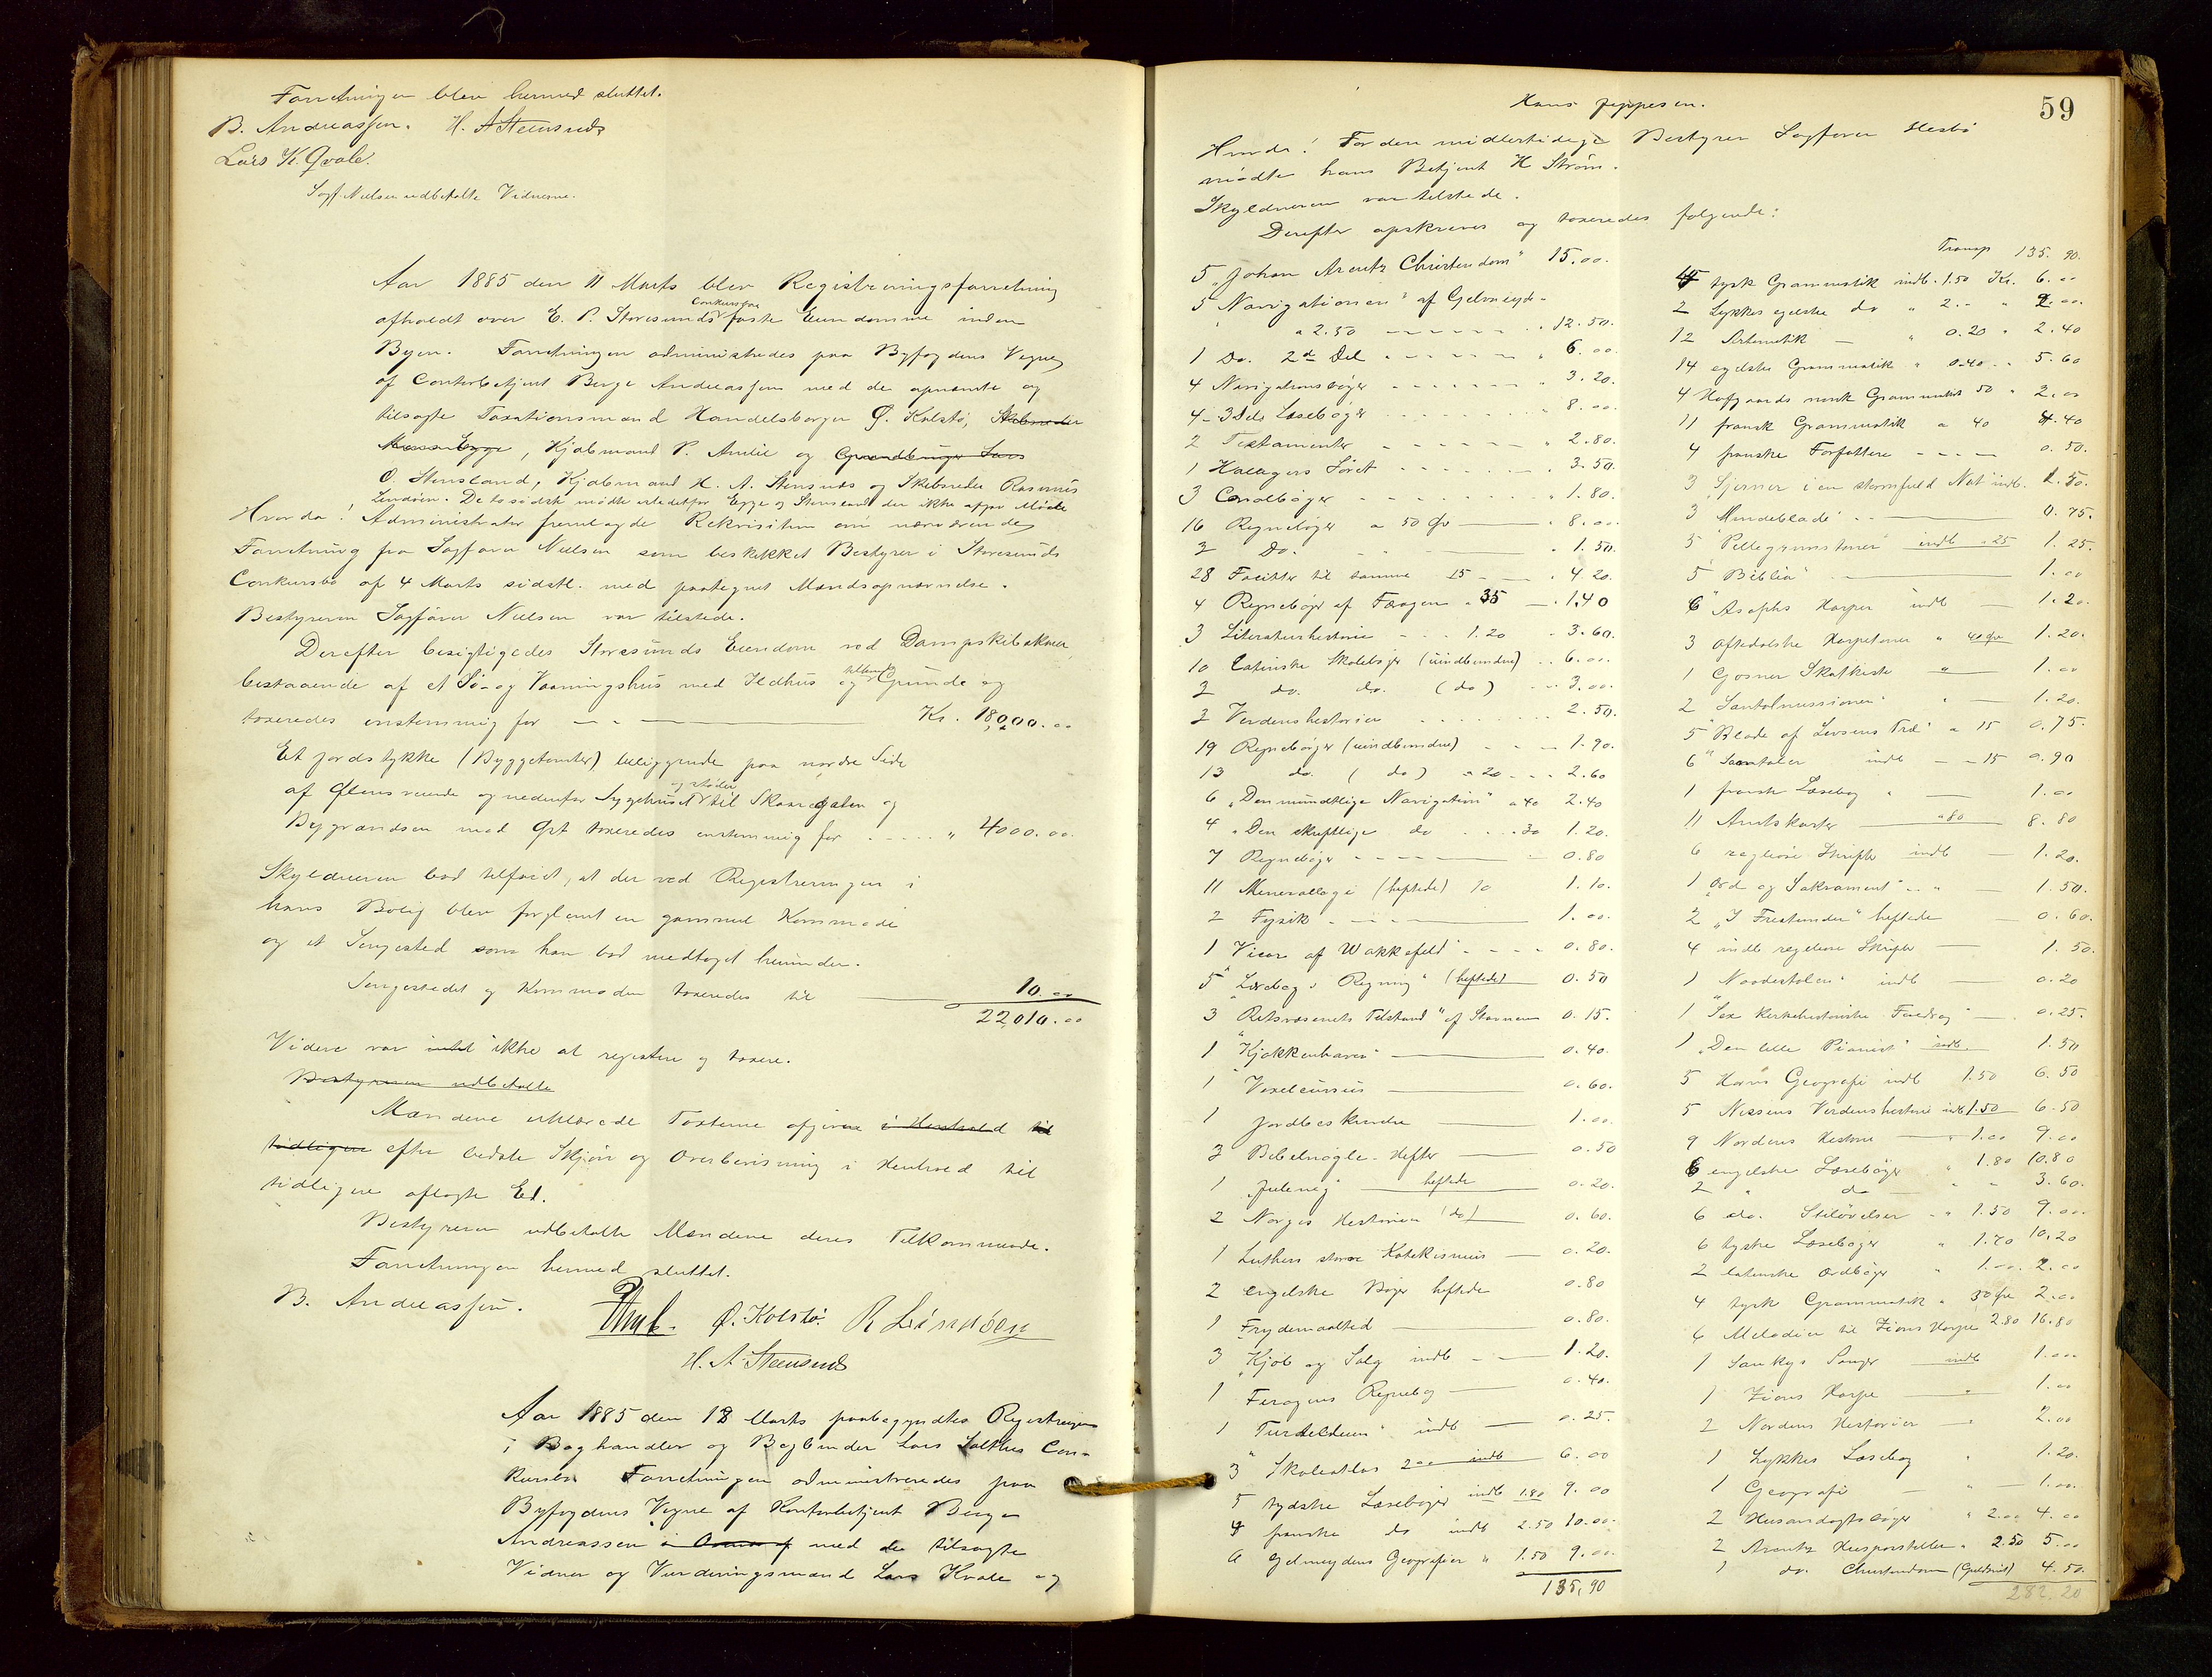 Forretningen blev hermed sluttet.
B. Andreassen. H. A Steensnæs
Lars K. Qvale.
Sagf. Nielsen udbetalte Vidnerne.
Aar 1885 den 11 Marts blev Registreringsforretning
afholdt over E. P. Storesunds Conkursbos faste Eiendomme inden
Byen. Forretningen administredes paa Byfogdens Vegne
af Contorbetjent Berge Andreassen med de opnævnte og
tilsagte Taxationsmænd Handelsborger Ø. Kolstø, Skibsreder
, Kjøbmand P. Amlie og Lars
O. Stensland, Kjøbmand H. A. Stensnæs og Skibsreder Rasmus
Lindøen. De to sidste mødte istedetfor Egge og Stensland der ikke Møde
Hvorda! Administrator fremlagde Rekvisition om nærværende
Forretning fra Sagfører Nielsen som beskikket Bestyrer i Storesunds
Conkursbo af 4 Marts sidstl. med paategnet Mandsopnævnelse.
Bestyreren Sagfører Nielsen var tilstede.
Derefter besigtigedes Storesunds Eiendom ved Dampskibskaien,
bestaaende af et Sø- og Vaaningshus med Ildhus og Grunde og
taxeredes enstemmig for — Kr. 18,000.00
Et Jordstykke (Byggetomter) beliggende paa nordre Side
af og nedenfor Sygehuset og støder til Skaaregaten og
Bygrændsen mod Øst taxeredes enstemmig for " 4000.00.
Skyldneren bad tilført, at der ved Registreringen i
hans Bolig blev forglemt en gammel Kommode
og et Sengested som han bad medtaget herunder.
Sengestedet og Kommoden taxeredes til 10.00
22,010.00
Videre var intet ikke at registere og taxere.
Bestyreren udbetalte
Mændene erklærede Taxterne afgivne i Henhold til
tidligere efter bedste Skjøn og Overbevisning i Henhold til
tidligere aflagte Ed.
Bestyreren udbetalte Mændene deres Tilkommende.
Forretningen hermed sluttet.
B. Andreassen. Ø. Kolstø. R Lindøen
H. A Steensnæs
Aar 1885 den 18 Marts paabegyndtes Registreringen
i Boghandler og Bogbinder Lars Salthes Con-
kursbo. Forretningen administreredes paa
Byfogdens Vegne af Kontorbetjent Berge
Andreassen med de tilsagte
Vidner og Vurderingsmænd Lars Kvale og
59
Hans Jeppesen.
Hvorda! For den midlertidige Bestyrer Sagfører Hesbø
mødte hans Betjent H Strøm.
Skyldneren var tilstede.
Derefter opskreves og taxeredes følgende:
5 "Johan Arentz Christendom" 15.00.
5 "Navigationen" af Gelmuyd-
a 2.50 - - - 12.50.
1 Do. 2de Del - - - 6.00.
4 Navigationsbøger - - - 3.20.
4 - 3 Dels Læsebøger 8.00.
2 Testamenter - - - 2.80.
1 3.50.
3 1.80.
16 Regnebøger a 50 Øre 8.00
3 Do. 1.50.
28 Faciter til samme 15 4.20.
4 Regnebøger af Færgen a 35 1.40
3 Literaturhistorie 1.20 3.60.
10 Latinske Skolebøger (uindbundne) 6.00.
3 do. do. (do) 3.00.
2 Verdenshistorier 2.50.
19 Regnebøger (uindbundne) 1.90.
13 do. (do) a 20 2.60
6 "Den mundtlige Navigation" a 40 2.40
4 "Den skriftlige do 30 1.20.
7 Regnebøger 0.80
11 Mineralogi (heftede) 10 1.10.
2 Fysik 1.00.
1 Vicar of Wakkefield 0.80.
5 "Lærebog i Regning" (heftede) 0.50
3 "Retsvæsenets Tilstand" af 0.15.
1 "Kjøkkenhaven" 0.40.
1 Vexelcursus 0.60.
1 Jordbeskrivelse 1.00.
3 Bibelnøgle-Hefter 0.50
1 "Juleneg" heftede 0.20.
2 Norges Historien (do) 0.60.
1 Luthers store Katekismus 0.20.
2 engelske Bøger heftede 0.80
1 Frydemaaltid 0.80.
3 "Kjøb og Salg indb 1.20.
1 Færøgens Regnebog 0.40.
1 indb 0.25.
3 "Skoleatlas 2.00 indb 6.00
5 tydske Læsebøger indb 1.80 9.00
4 franske do indb 2.50 10.00.
6 Gelmuydens Geografier " 1.50 9.00.
135,90
Transp 135.90.
4 tysk Grammatik indb. 1.50 Kr. 6.00
2 Lykkes egelske do " 2.- " 2.00.
12 Aritmetik — " 0.20 " 2.40
14 egelske Grammatik " 0.40 - 5.60
4 Hofgaards norsk Grammatik 50 " 2.00
11 fransk Grammatik a 40 4.40
4 franske Forfattere - - - 0.50.
3 "Stjerner i en stormfuld Nat" indb. 1.50.
3 "Mindeblade" 0.75.
5 "Pillegrimstoner" indb a 25 1.25.
5 "Biblia" 1.00
6 "Asaphs Harper indb — 1.20.
3 Oftedalske Harpetoner " 40 Øre 1.20.
1 Gosner Skatkiste " 1.00
2 Santalmissionen " 1.20.
5 "Blade af Livsens Træ" a 15 0.75.
6 "Samtaler indb a 15 0.90
1 fransk Læsebog " 1.00
11 Amtskarter a 80 8.80
6 regliøse Skrifter indb 1.20.
1 "Ord og Sakrament" 1.50.
2 "I Fristunder" heftede 0.60.
4 indb regliøse Skrifter 1.50.
1 "Naadestolen" indb 0.20
1 "Sex kirkehistoriske Foredrag" 0.25.
1 "Den lille Pianist" indb. 1.50
5 Horns Geografi indb 1.50 6.50
5 Nissens Verdenshistorie indb 1.50 6.50
9 Nordens Historie 1.00 9.00
6 engelske Læsebøger " 1.80 10.80
2 " do " " 3.60.
6 do. Stiløvelser " 1.50 9.00
6 tyske Læsebøger " 1.70 10.20
2 latinske Ordbøger " 1.00. 2.00
4 tysk Grammatik " 30 Øre 2.00
6 Melodier til Zions Harpe 2.80 16.80
1 Sankys Sanger indb 1.00
1 Zions Harpe " 1.00
2 Nordens Historier " 2.00
1 Lykkes Læsebog " 1.20.
1 Geografi " 1.00.
2 Husandagtsbøger " 2.00 4.00
2 Arentz Huspostiller " 2.50 5.00
1 do. Christendom (Guldsnit) 4.50.
282.20